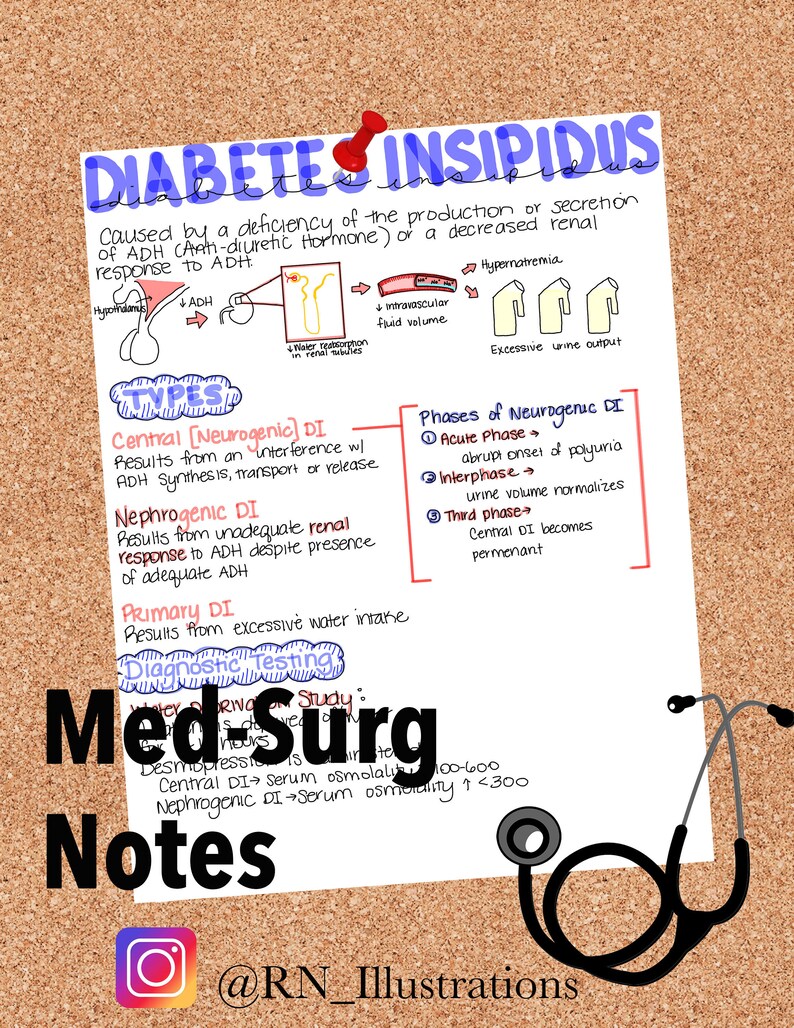 DIABETES INSIPIDUS
diabetes insipidus
Caused by a deficiency of the production or secretion
of ADH (Anti-diuretic Hormone) or a decreased renal
response to ADH.
Hypothalamus
↓ ADH
↓ Water reabsorption
in renal tubules
↓ Intravascular
fluid volume
Na+ Na+
Hypernatremia
Excessive urine output
TYPES
Central [Neurogenic] DI
Results from an interference w/
ADH synthesis, transport or release
Phases of Neurogenic DI
① Acute Phase →
abrupt onset of polyuria
② Interphase →
urine volume normalizes
③ Third phase→
Central DI becomes
permenant
Nephrogenic DI
Results from unadequate renal
response to ADH despite presence
of adequate ADH
Primary DI
Results from excessive water intake
Diagnostic Testing
Study:
hours
Desmopression is
Central DI→ serum osmolality 100-600
Nephrogenic DI →Serum osmolality ↑ <300
Med-Surg
Notes
@RN_Illustrations